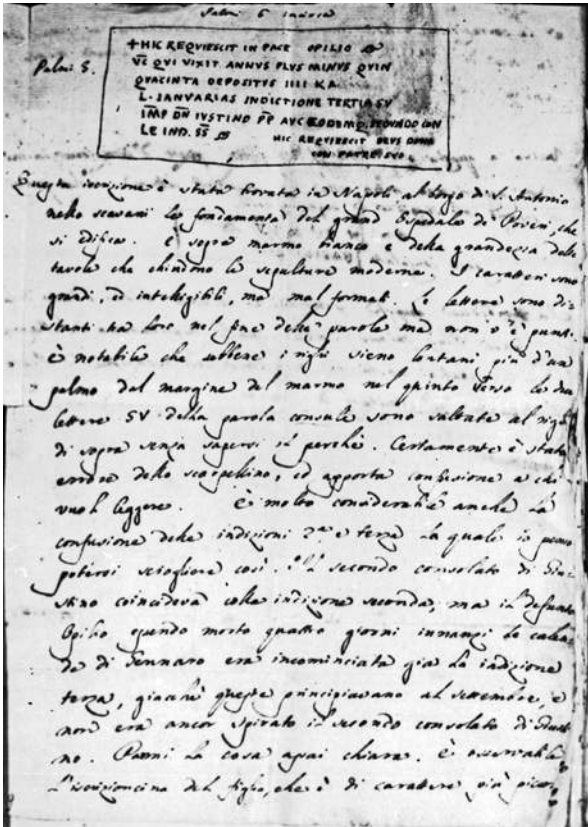 Palmi 6 incirca
Palmi 5.
+HIC REQUIESCIT IN PACE OPILIO
VC QVI VIXIT ANNVS PLVS MINVS QVIN
QVACINTA DEPOSITVS IIII KA
L. IANVARIAS INDICTIONE TERTIA SV
IMP DN IVSTINO PP AVC EODEMQ SECVNDO CON
LE IND. SS HIC REQVIESCIT
CON PATRE SVO
Questa iscrizione è stata trovata in Napoli al borgo di S. Antonio
nello scavarsi le fondamenta del grand Ospedale de' Poveri, che
si edifica. È sopra marmo bianco e della grandezza delle
tavole che chiudono le sepolture moderne. I caratteri sono
grandi, ed intelligibili, ma mal formati. Le lettere sono di-
stanti tra loro nel fine delle parole ma non v'è punti.
è notabile che sebbene i righi sieno lontani più d'un
palmo dal margine del marmo nel quinto verso le due
lettere SV della parola consule sono saltate al rigo
di sopra senza sapersi il perchè. Certamente è stato
errore dello scarpellino, ed apporta confusione a chi
vuol leggere. È molto considerabile anche la
confusione delle indizioni 2a e terza la quale io penso
potersi sciogliere così. Il secondo consolato di Giu-
stino coincideva colla indizione seconda, ma il defunto
Opilio essendo morto quattro giorni innanzi le calen-
de di Gennaro era incominciata già la indizione
terza, giacchè queste principiavano al settembre, e
non era ancor spirato il secondo consolato di Giusti-
no. Parmi la cosa assai chiara. È osservabile
L'iscrizioncina del figlio, che è di carattere più picco-